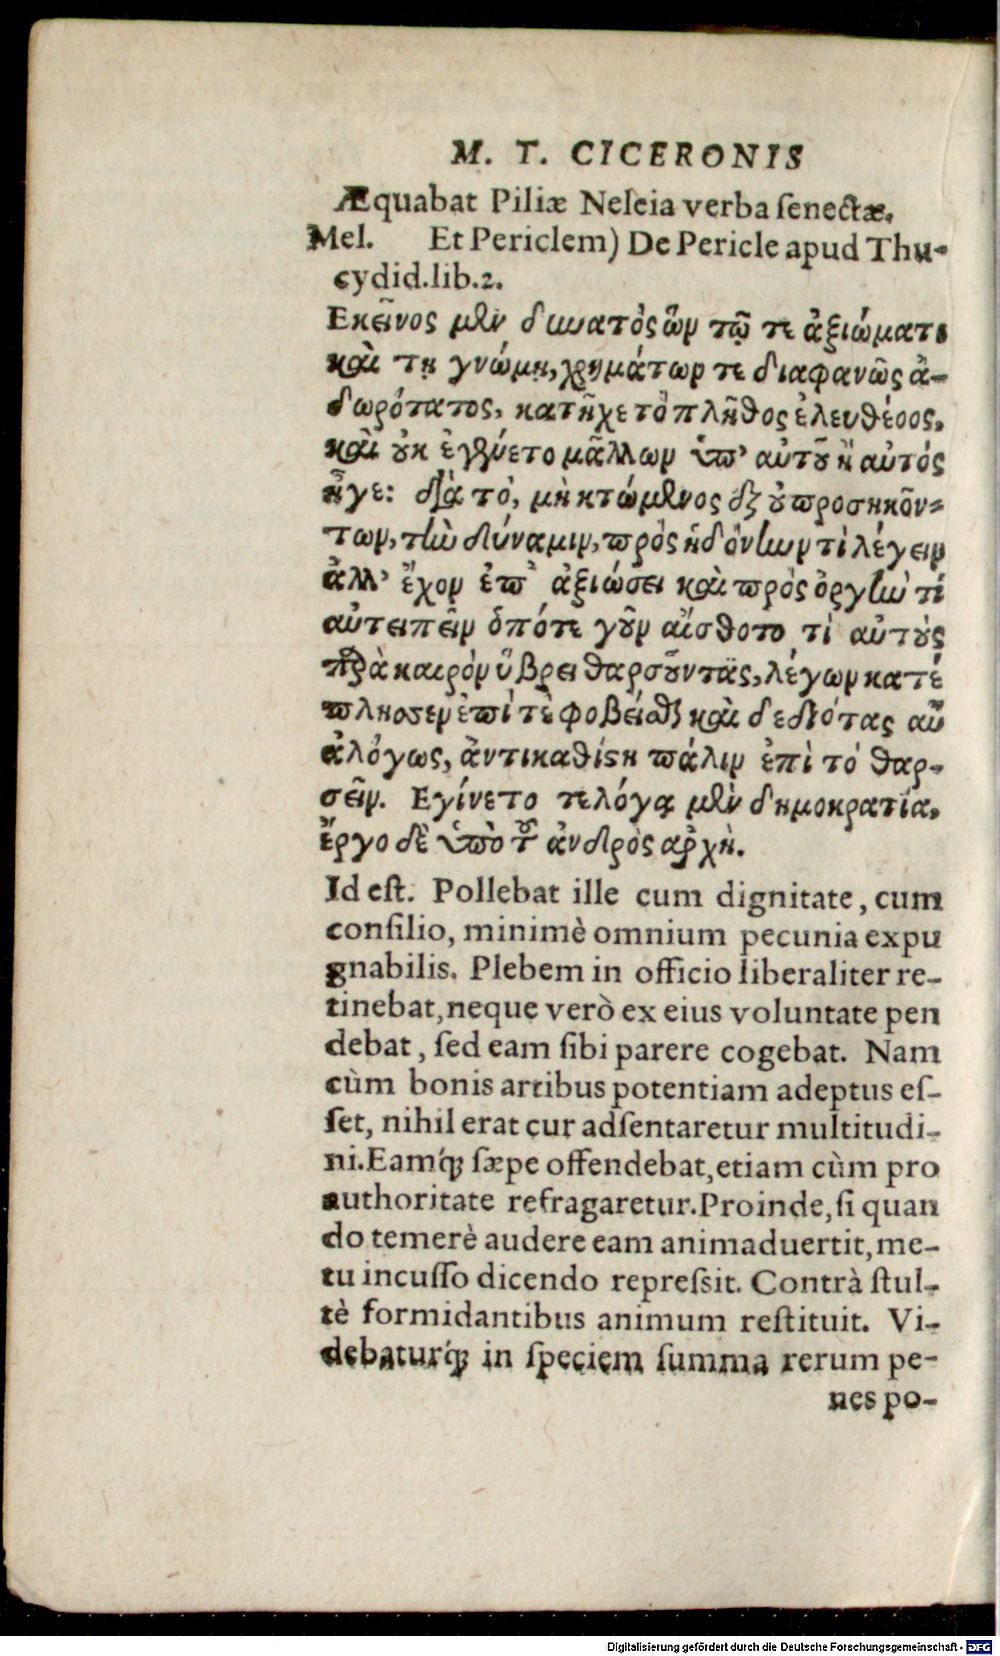 M. T. CICERONIS
Æquabat Piliæ Neleia verba ſenectæ.
Mel. Et Periclem) De Pericle apud Thu-
cydid.lib.2.
Εκεῖνος μὲν δυνατὸς ὢν τῷ τε ἀξιώματι
καὶ τῃ γνώμῃ, χρημάτων τε διαφανῶς ἀ-
δωρότατος, κατῆχε τὸ πλῆθος ἐλευθέρος,
καὶ οὐκ ἐγγύετο μᾶλλων ὑπ’ αὐτοῦ ἢ αὐτός
ἦγε: διὰ τὸ, μὴ κτώμενος ἐξ οὐ προσηκόν-
των, τὴν δύναμιν, πρὸς ἡδόνὴων τὶ λέγειν
ἀλλ’ ἔχον ἐπ’ ἀξιώσει καὶ πρὸς ὀργὴν τί
αὐτειπεῖν ὁπότε γοῦν αἴσθοτο τὶ αὐτοὺς
παρὰ καιρὸν ὕβρει θαρσοῦντάς, λέγων κατέ
πλησσεν ἐπὶ τὲ φοβεῖσθαι καὶ δεδιότας αὖ
ἀλόγως, ἀντικαθίςη πάλιν ἐπὶ τὸ θαρ-
σεῖν. Εγίνετο τε λόγῳ μὲν δημοκρατία,
ἔργο δὲ ὑπὸ τοῦ ἀνδρὸς αῤχὴ.
Id eſt. Pollebat ille cum dignitate, cum
conſilio, minimè omnium pecunia expu
gnabilis. Plebem in officio liberaliter re-
tinebat, neque verò ex eius voluntate pen
debat, ſed eam ſibi parere cogebat. Nam
cùm bonis artibus potentiam adeptus eſ-
ſet, nihil erat cur adſentaretur multitudi-
ni. Eamq́; ſæpe offendebat, etiam cùm pro
authoritate refragaretur. Proinde, ſi quan
do temerè audere eam animaduertit, me-
tu incuſſo dicendo repreſsit. Contrà ſtul-
tè formidantibus animum reſtituit. Vi-
debaturq́; in ſpeciem ſumma rerum pe-
nes po-
Digitalisierung gefördert durch die Deutsche Forschungsgemeinschaft - DFG